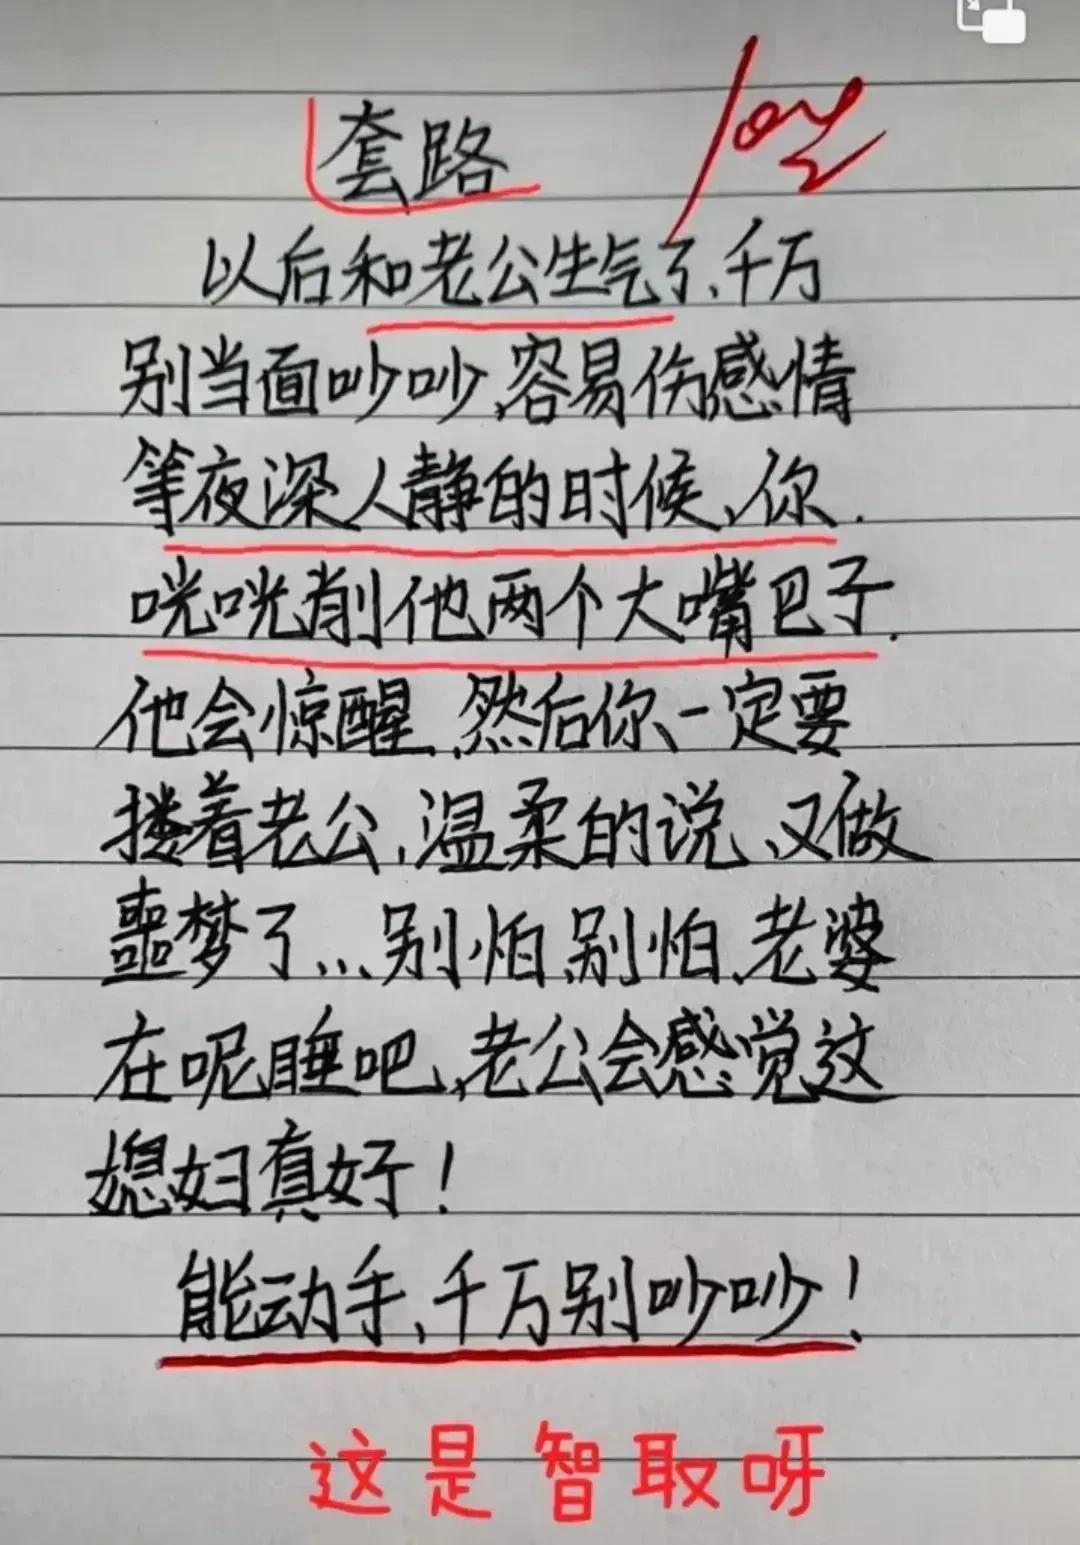 套路
以后和老公生气了、千万
别当面吵吵,容易伤感情
等夜深人静的时候、你.
咣咣削他两个大嘴巴子.
他会惊醒,然后你一定要
搂着老公,温柔的说、又做
噩梦了...别怕,别怕、老婆
在呢睡吧,老公会感觉这
媳妇真好!
能动手、千万别吵吵!
这是智取呀